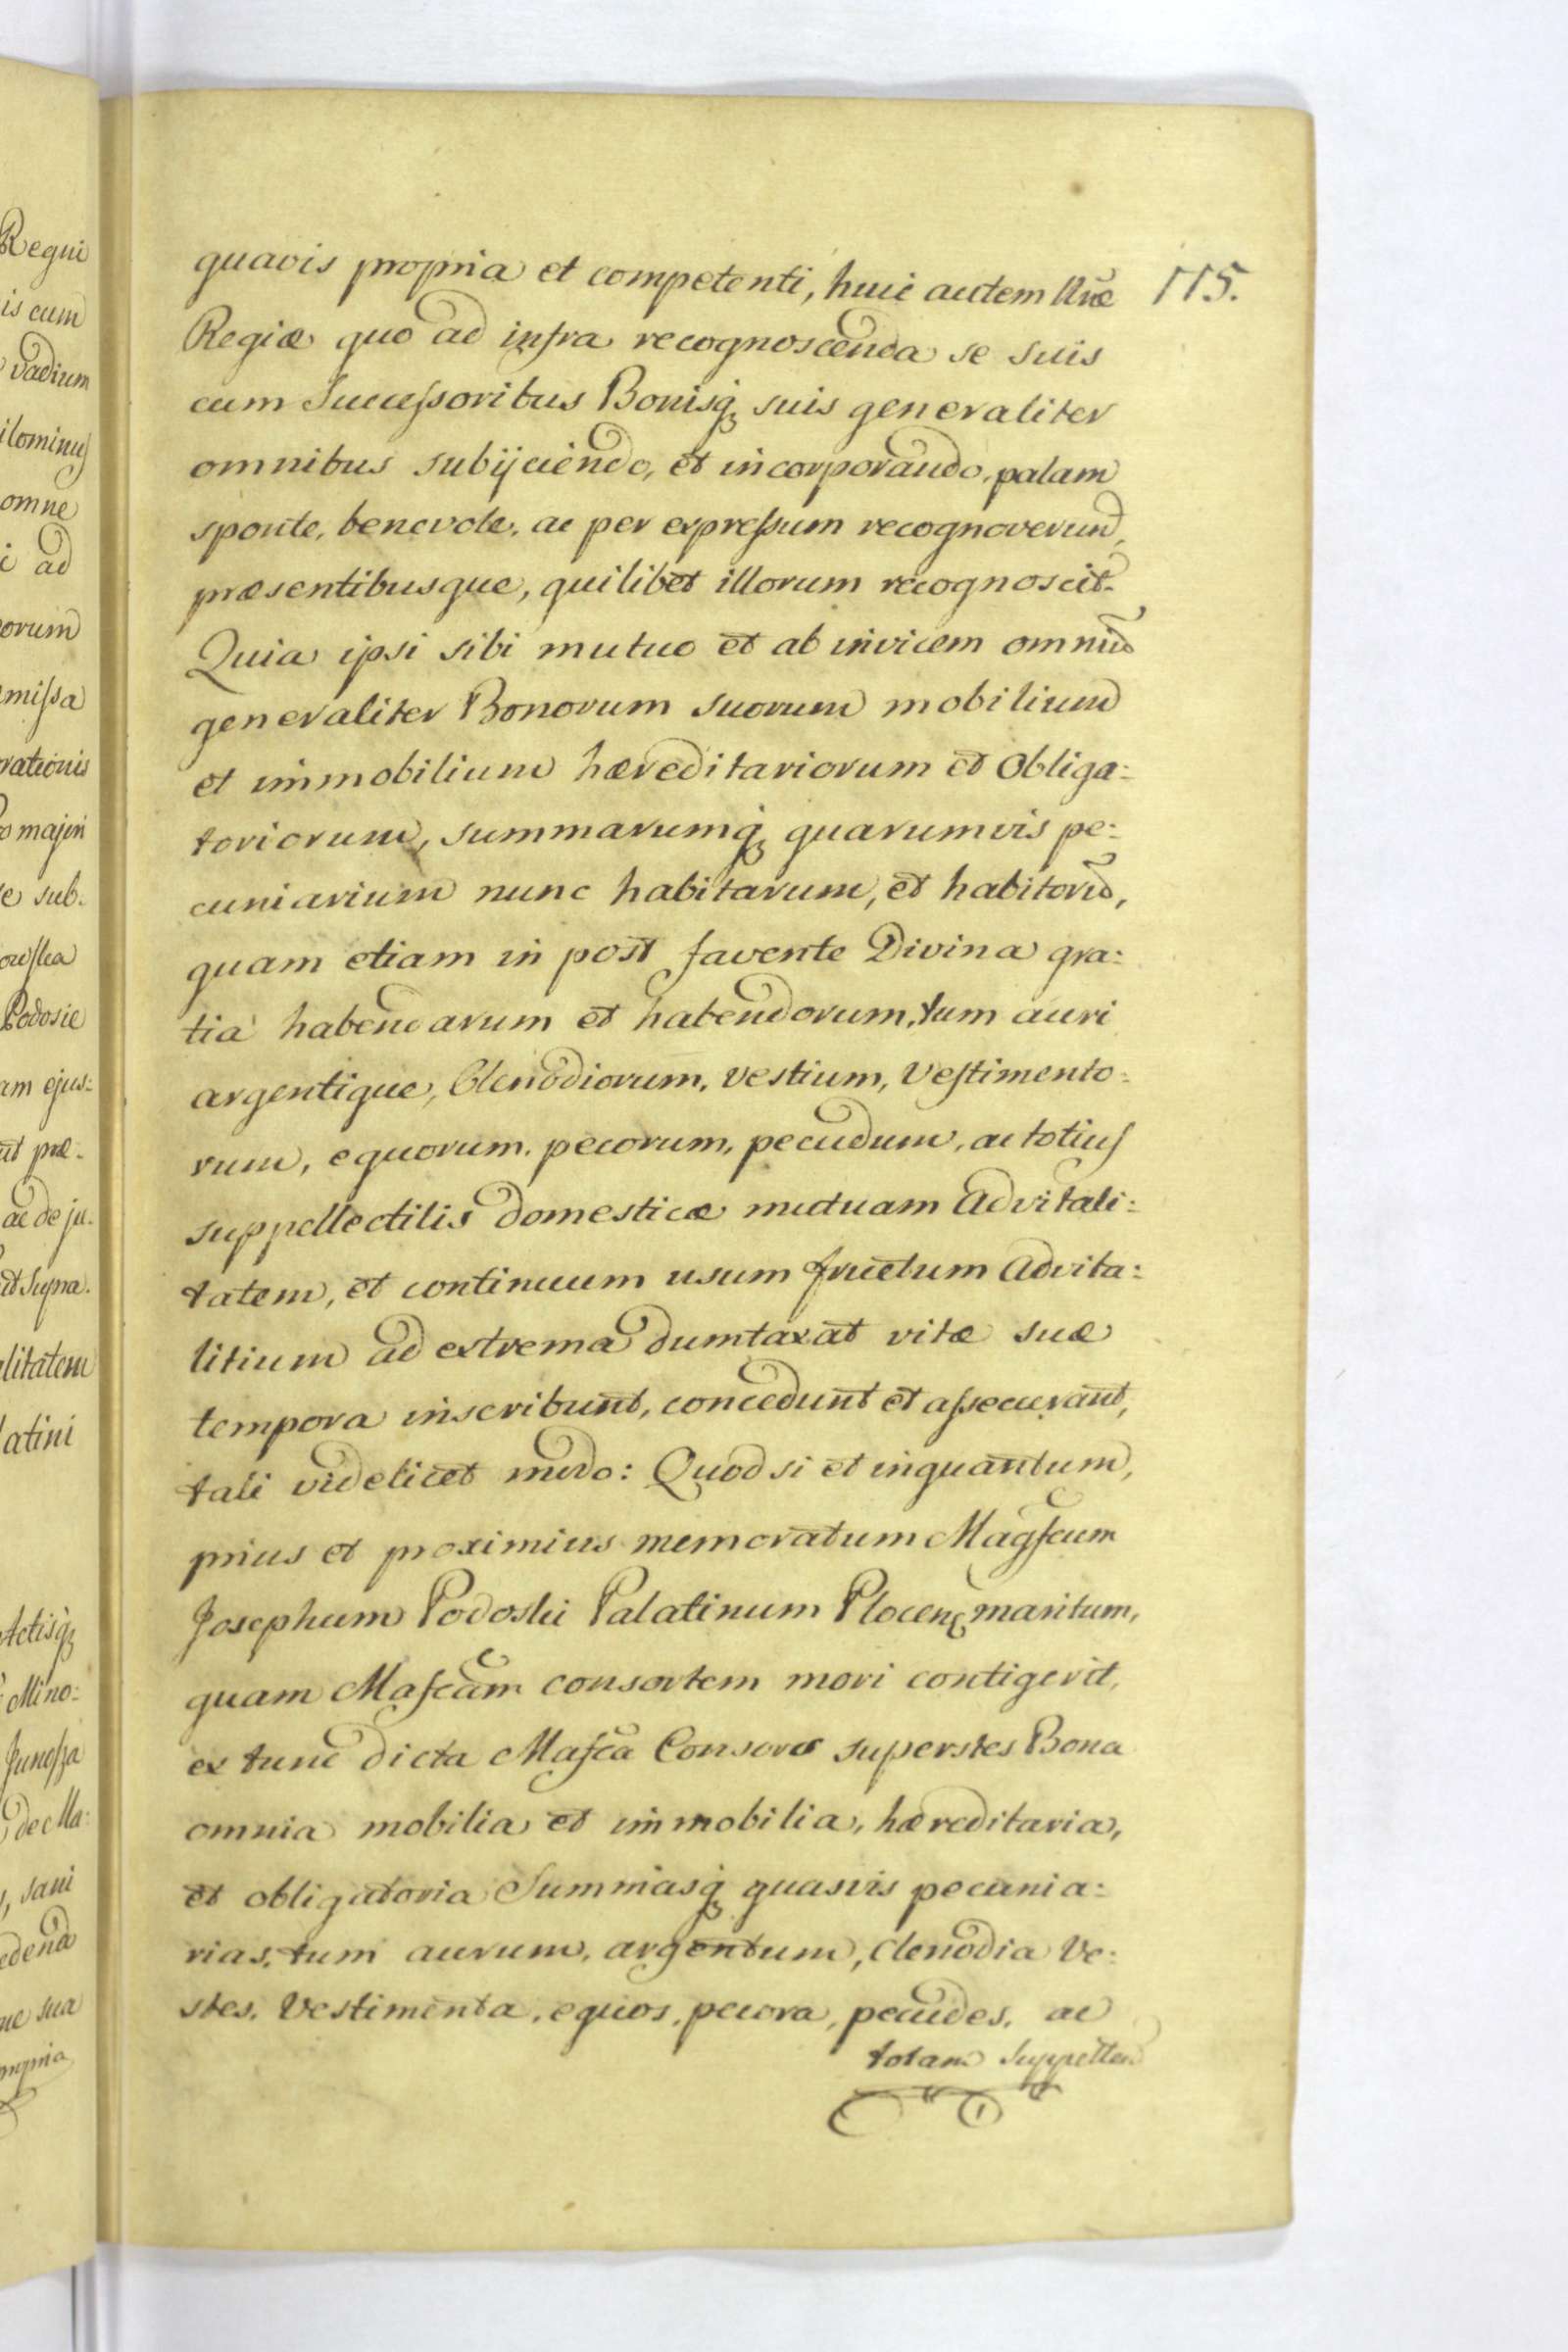 Regni
is cum
vadium
ilominus
omne
i ad
orum
missa
rationis
o majori
e sub.
Podosie
am ejus:
ut præ:
ac de ju:
ut supra.
litatem
latini
Actisq;
Mino:
de Ma:
, sani
edend
ne sua
propria
115.
quavis propria et competenti, huic autem Atñæ
Regiæ quo ad infra recognoscenda se suis
cum Successoribus Bonisq; suis generaliter
omnibus subijciendo, et incorporando, palam
sponte, benevole, ac per expressum recognoverund,
præsentibusque, quilibet illorum recognoscit.
Quia ipsi sibi mutuo et ab invicem omniũ
generaliter Bonorum suorum mobilium
et immobilium hæreditariorum et Obliga:
toriorum, summarumq; quarumvis pe:
cuniarium nunc habitarum, et habitorũ,
quam etiam in post favente Divina gra:
tia habendarum et habendorum, tum auri
argentique, Clenodiorum, vestium, Vestimento:
rum, equorum, pecorum, pecudum, ac totius
suppellectilis domesticæ mutuam Advitali:
tatem, et continuum usum fructum Advita:
litium ad extrema dumtaxat vitæ suæ
tempora inscribunt, concedunt et assecurant,
tali videlicet modo: Quod si et inquantum,
prius et proximius memoratum Magfcum
Josephum Podoski Palatinum Plocen; maritum,
quam Mafcam consortem mori contigerit,
ex tunc dicta Mafca Consors superstes Bona
omnia mobilia et immobilia, hæreditaria,
et obligatoria Summasq; quasvis pecunia:
rias, tum aurum, argentum, Clenodia Ve:
stes, Vestimenta, equos, pecora, pecudes, ac
totam Suppellec